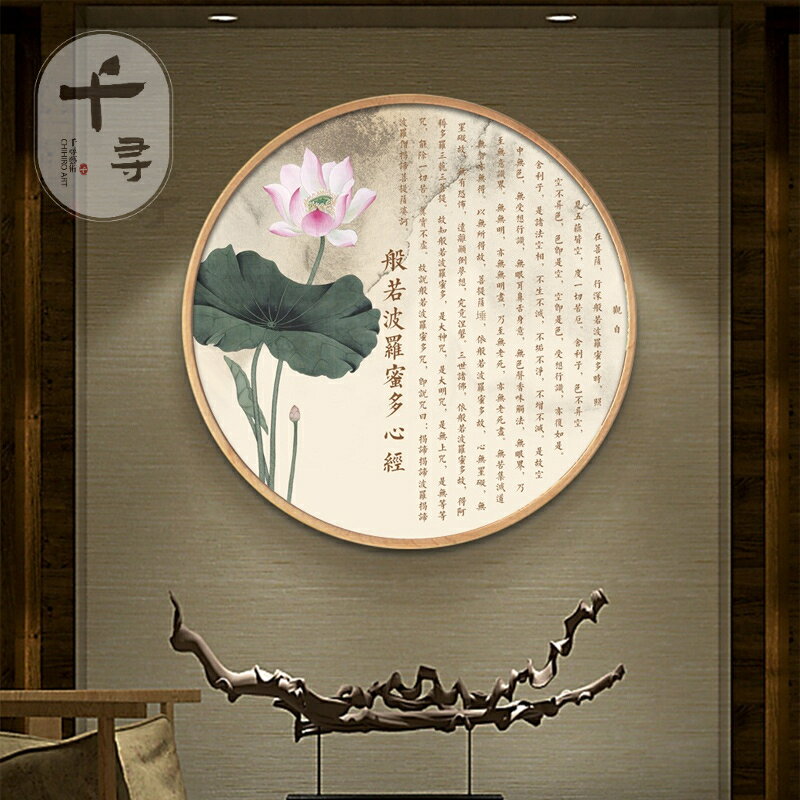 千寻
千尋藝術
CHIHIRO ART
觀自
在菩薩，行深般若波羅蜜多時，照
見五蘊皆空，度一切苦厄。舍利子，色不异空，
空不异色，色即是空，空即是色，受想行識，亦復如是。
舍利子，是諸法空相，不生不滅，不垢不淨，不增不減。是故空
中無色，無受想行識，無眼耳鼻舌身意，無色聲香味觸法，無眼界，乃
至無意識界，無無明，亦無無明盡，乃至無老死，亦無老死盡。無苦集滅道
無智亦無得。以無所得故，菩提薩埵，依般若波羅蜜多故，心無罣礙，無
罣礙故，無有恐怖，遠離顛倒夢想，究竟涅槃。三世諸佛，依般若波羅蜜多故，得阿
耨多羅三藐三菩提。故知般若波羅蜜多，是大神咒，是大明咒，是無上咒，是無等等
咒，能除一切苦，真實不虛。故說般若波羅蜜多咒，即說咒曰：揭諦揭諦波羅揭諦
波羅僧揭諦菩提薩婆訶
般若波羅蜜多心經